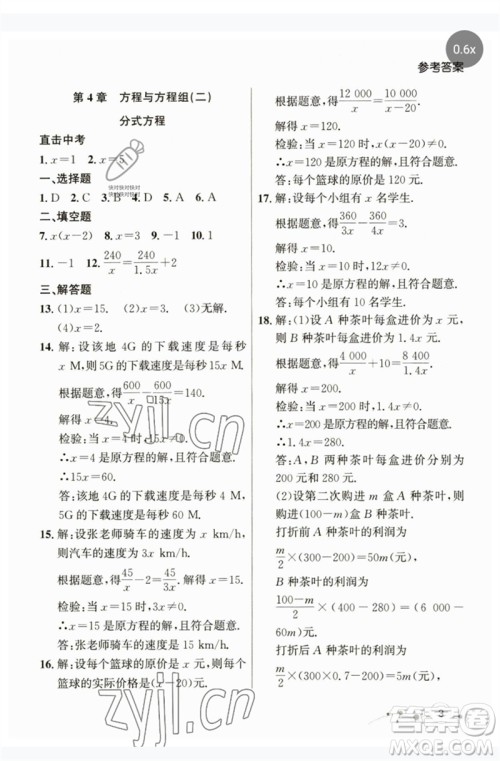 0.6x
参考答案
第4章 方程与方程组(二)
分式方程
直击中考
1. x=1 2. x=5
一、选择题
1. D 2. C 3. B 4. D 5. A 6. A
二、填空题
7. x(x-2) 8. x 9. x=4 10. 1
11. -1 12. 240/x=240/1.5x+2
三、解答题
13. (1)x=15. (2)x=3. (3)无解.
(4)x=2.
14. 解:设该地 4G 的下载速度是每秒
x M,则 5G 的下载速度是每秒 15x M.
根据题意,得600/x-600/15x=140.
解得 x=4.
检验:当 x=4 时,15x≠0.
∴x=4 是原方程的解,且符合题意.
∴15x=15×4=60.
答:该地 4G 的下载速度为每秒 4 M,
5G 的下载速度为每秒 60 M.
15. 解:设张老师骑车的速度为 x 千米/时,
则汽车的速度为 3x 千米/时.
根据题意,得45/x-2=45/3x.解得 x=15.
检验:当 x=15 时,3x≠0.
∴x=15 是原方程的解,且符合题意.
答:张老师骑车的速度为 15 千米/时.
16. 解:设每个篮球的原价是 x 元,则每个
篮球的实际价格是(x-20)元.
根据题意,得12 000/x=10 000/x-20.
解得 x=120.
检验:当 x=120 时,x(x-20)≠0.
∴x=120 是原方程的解,且符合题意.
答:每个篮球的原价是 120 元.
17. 解:设每个小组有 x 名学生.
根据题意,得360/3x-360/4x=3.
解得 x=10.
检验:当 x=10 时,12x≠0.
∴x=10 是原方程的解,且符合题意.
答:每个小组有 10 名学生.
18. 解:(1)设 A 种茶叶每盒进价为 x 元,
则 B 种茶叶每盒进价为 1.4x 元.
根据题意,得4 000/x+10=8 400/1.4x.
解得 x=200.
检验:当 x=200 时,1.4x≠0.
∴x=200 是原方程的解,且符合题意.
∴1.4x=280.
答:A,B 两种茶叶每盒进价分别为
200 元和 280 元.
(2)设第二次购进 m 盒 A 种茶叶,则
(100-m)盒 B 种茶叶.
打折前 A 种茶叶的利润为
m/2×(300-200)=50m(元).
B 种茶叶的利润为
100-m/2×(400-280)=(6 000-
60m)(元).
打折后 A 种茶叶的利润为
m/2×(300×0.7-200)=5m(元).
3
快对快对快对
zyjl.cn
zyjl.cn
答案圈
MXQE.COM